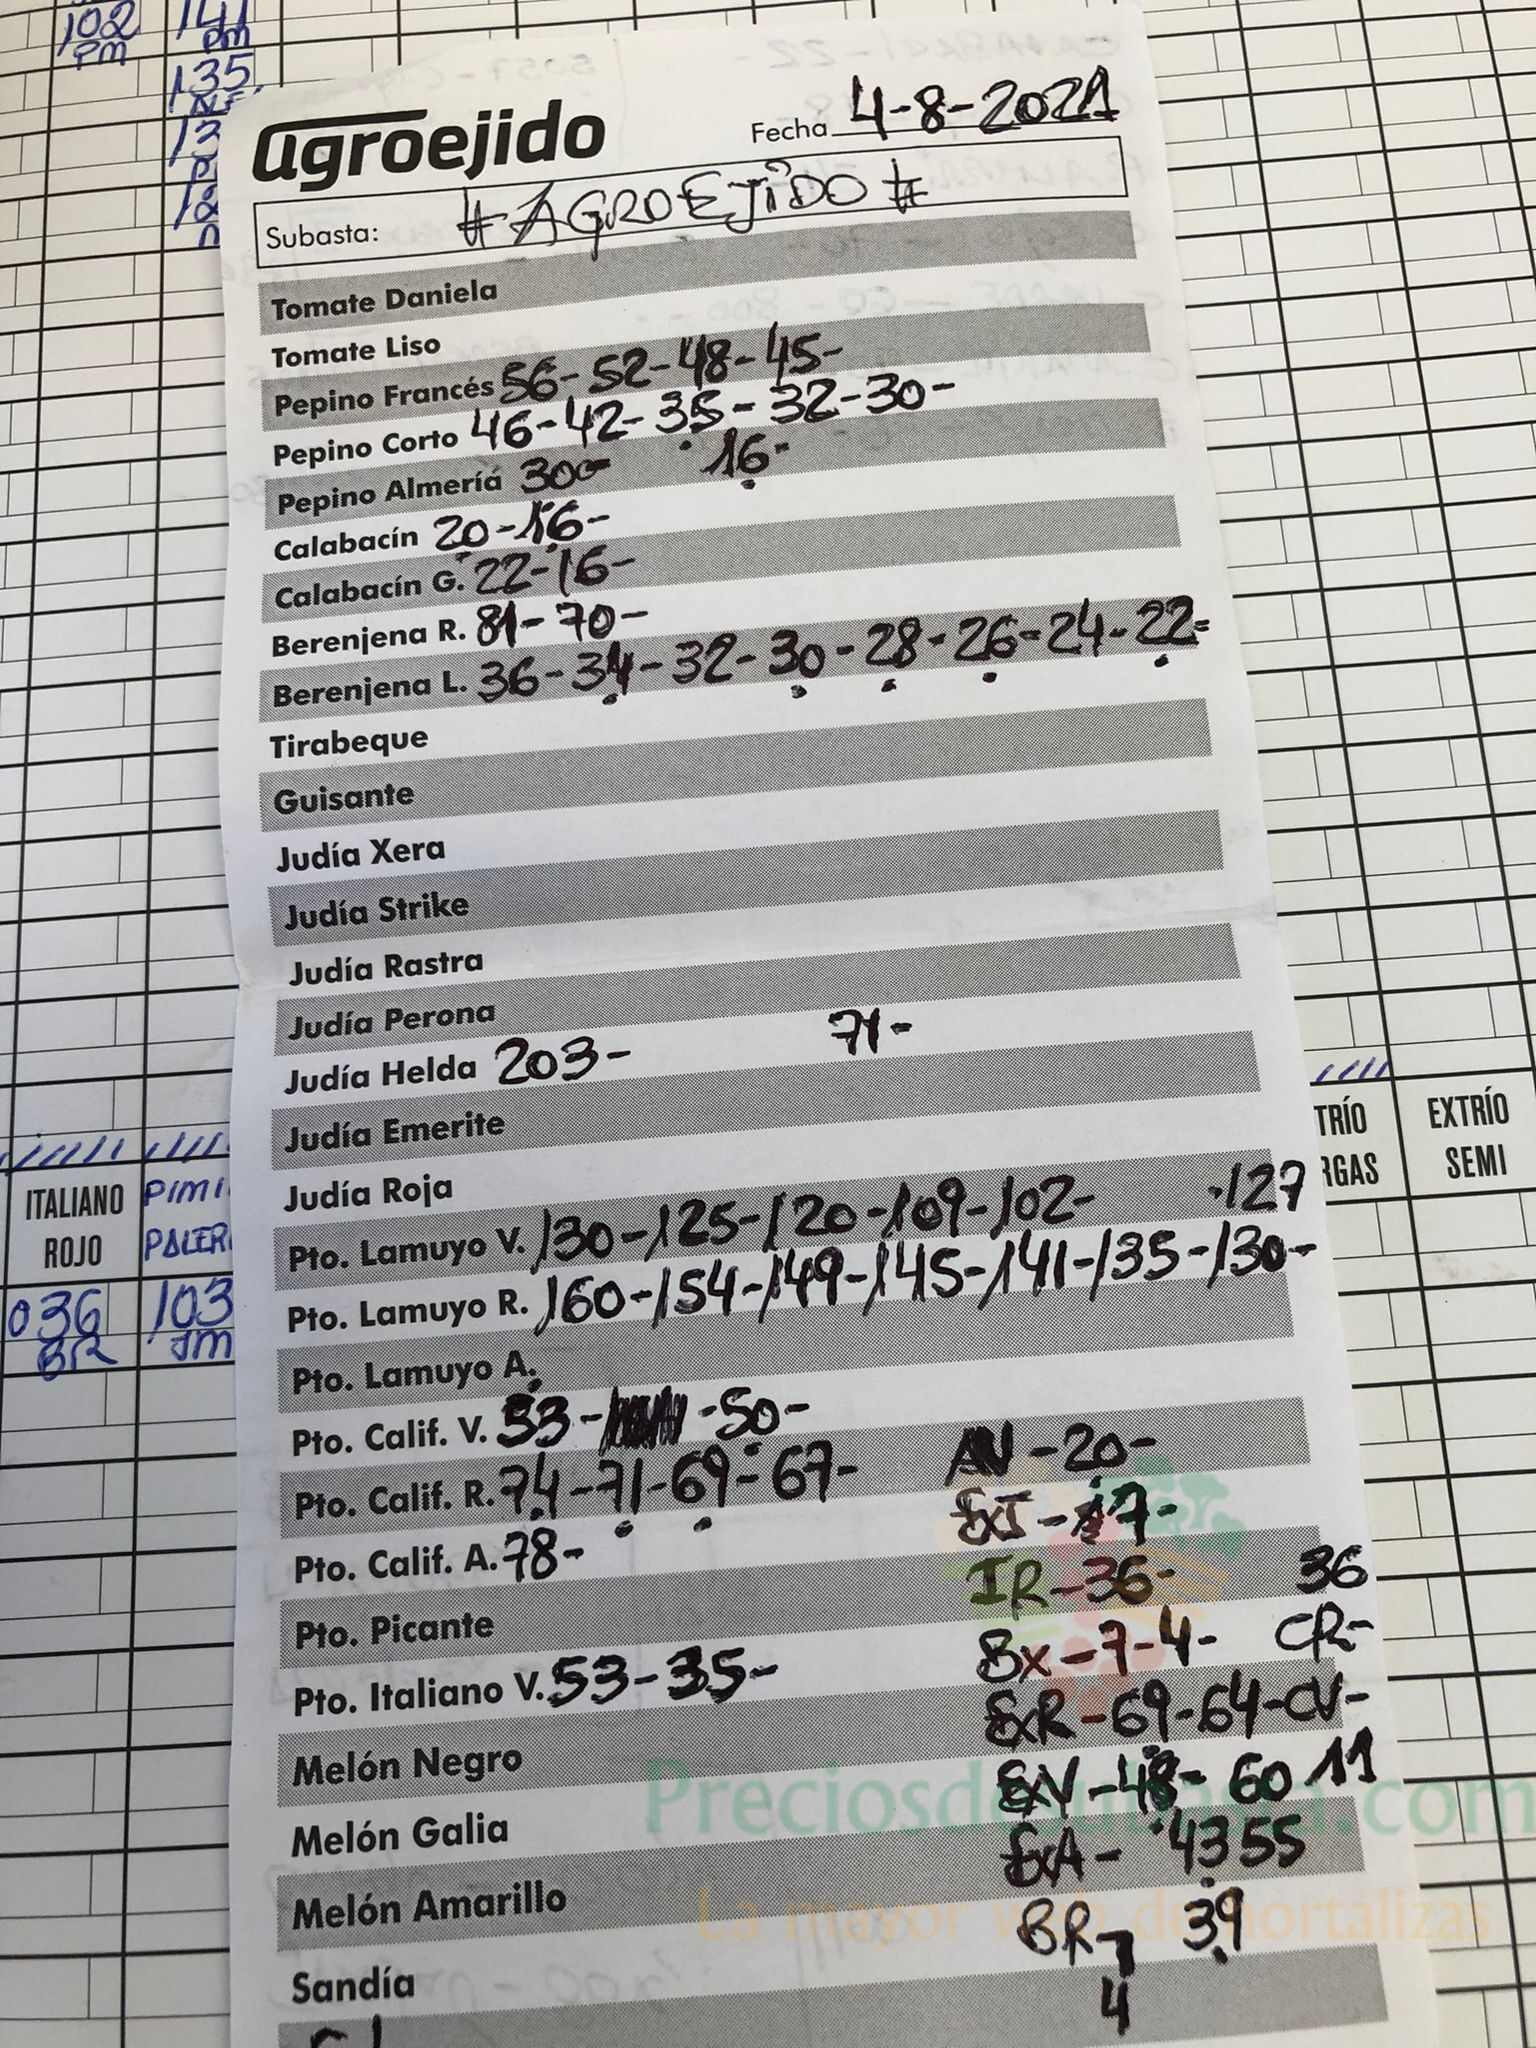 102 141
PM PM
135
agroejido
Fecha 4-8-2021
Subasta: #AGROEJIDO#
Tomate Daniela
Tomate Liso
Pepino Francés 56-52-48-45-
Pepino Corto 46-42-35-32-30-
Pepino Almería 300- 16-
Calabacín 20-16-
Calabacín G. 22-16-
Berenjena R. 81-70-
Berenjena L. 36-34-32-30-28-26-24-22=
Tirabeque
Guisante
Judía Xera
Judía Strike
Judía Rastra
Judía Perona
Judía Helda 203- 71-
Judía Emerite
Judía Roja
Pto. Lamuyo V. 130-125-120-109-102- 127
Pto. Lamuyo R. 160-154-149-145-141-135-130-
Pto. Lamuyo A.
Pto. Calif. V. 53- -50-
Pto. Calif. R. 74-71-69-67- -20-
Pto. Calif. A. 78- ExT-17-
IR-36- 36
Pto. Picante
Bx-7-4- CR-
Pto. Italiano V. 53-35-
ExR-69-64-CV-
Melón Negro
ExV-48-60 11
Melón Galia
ExA- 43 55
Melón Amarillo
BR-7 39
4
Sandía
ITALIANO
ROJO
PIMI
PALER
036 103
BR JM
TRÍO
RGAS
EXTRÍO
SEMI
Preciosdesubasta.com
La mayor web de hortalizas